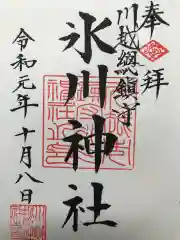 奉拝
川越總鎮守
氷川神社
令和元年十月八日